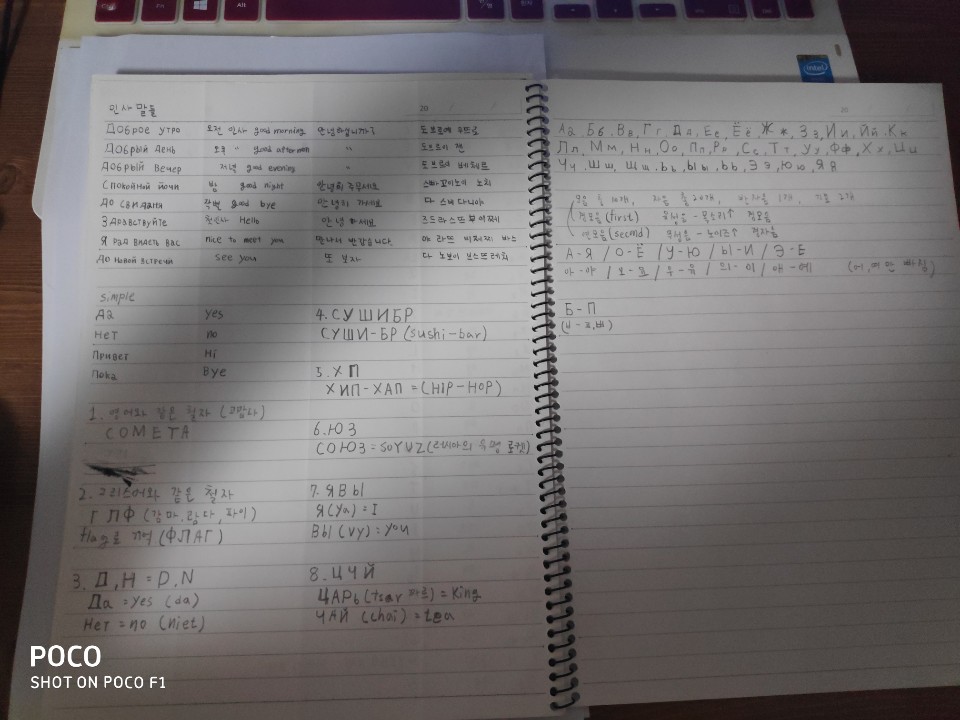 인사말들
20
доброе утро 오전 인사 good morning 안녕하십니까? 도브로예 우뜨로
добрый день 오후 " good afternoon " 도브리 젠
добрый вечер 저녁 good evening " 도브리 베체르
спокойной ночи 밤 good night 안녕히 주무세요 스빠꼬이노이 노치
до свидания 작별 good bye 안녕히 가세요 다 스비다니야
здравствуйте 첫인사 Hello 안녕하세요
я рад видеть вас nice to meet you 만나서 반갑습니다. 야 라뜨 바스
до новой встречи see you 또 보자 다 노보이
simple
да yes
нет no
привет Hi
пока Bye
1. 영어와 같은 철자 (코맙사)
COMETA
2. 그리스어와 같은 철자
Г Л Ф (감마, 람다, 파이)
flag로 기억 (ФЛАГ)
3. Д, Н = D, N
Да = yes (da)
Нет = no (niet)
4. СУШИБР
СУШИ-БР (sushi-bar)
5. ХП
ХИП-ХАП = (HIP-HOP)
6. ЮЗ
СОЮЗ = SOYUZ (러시아의 로켓)
7. ЯВЫ
Я (Ya) = I
ВЫ (vy) = you
8. ЦЧЙ
ЦАРЬ (tsar 짜르) = King
ЧАЙ (chai) = tea
20
Аа, Бб, Вв, Гг, Дд, Ее, Ёё, Жж, Зз, Ии, Йй, Кк
Лл, Мм, Нн, Оо, Пп, Рр, Сс, Тт, Уу, Фф, Хх, Цц
Чч, Шш, Щщ, Ъъ, Ыы, Ьь, Ээ, Юю, Яя
모음 총 10개, 자음 총 20개, 반자음 1개, 기호 2개
경모음 (first) 유성음 - 목소리↑ 경모음
연모음 (second) 무성음 - 노이즈↑
А-Я / О-Ё / У-Ю / Ы-И / Э-Е
아-야 / 오-요 / 우-유 / 의-이 / 애-예 (어, 여 만 빠짐)
Б-П
(ㅂ-ㅍ, ㅃ)
intel
POCO
SHOT ON POCO F1